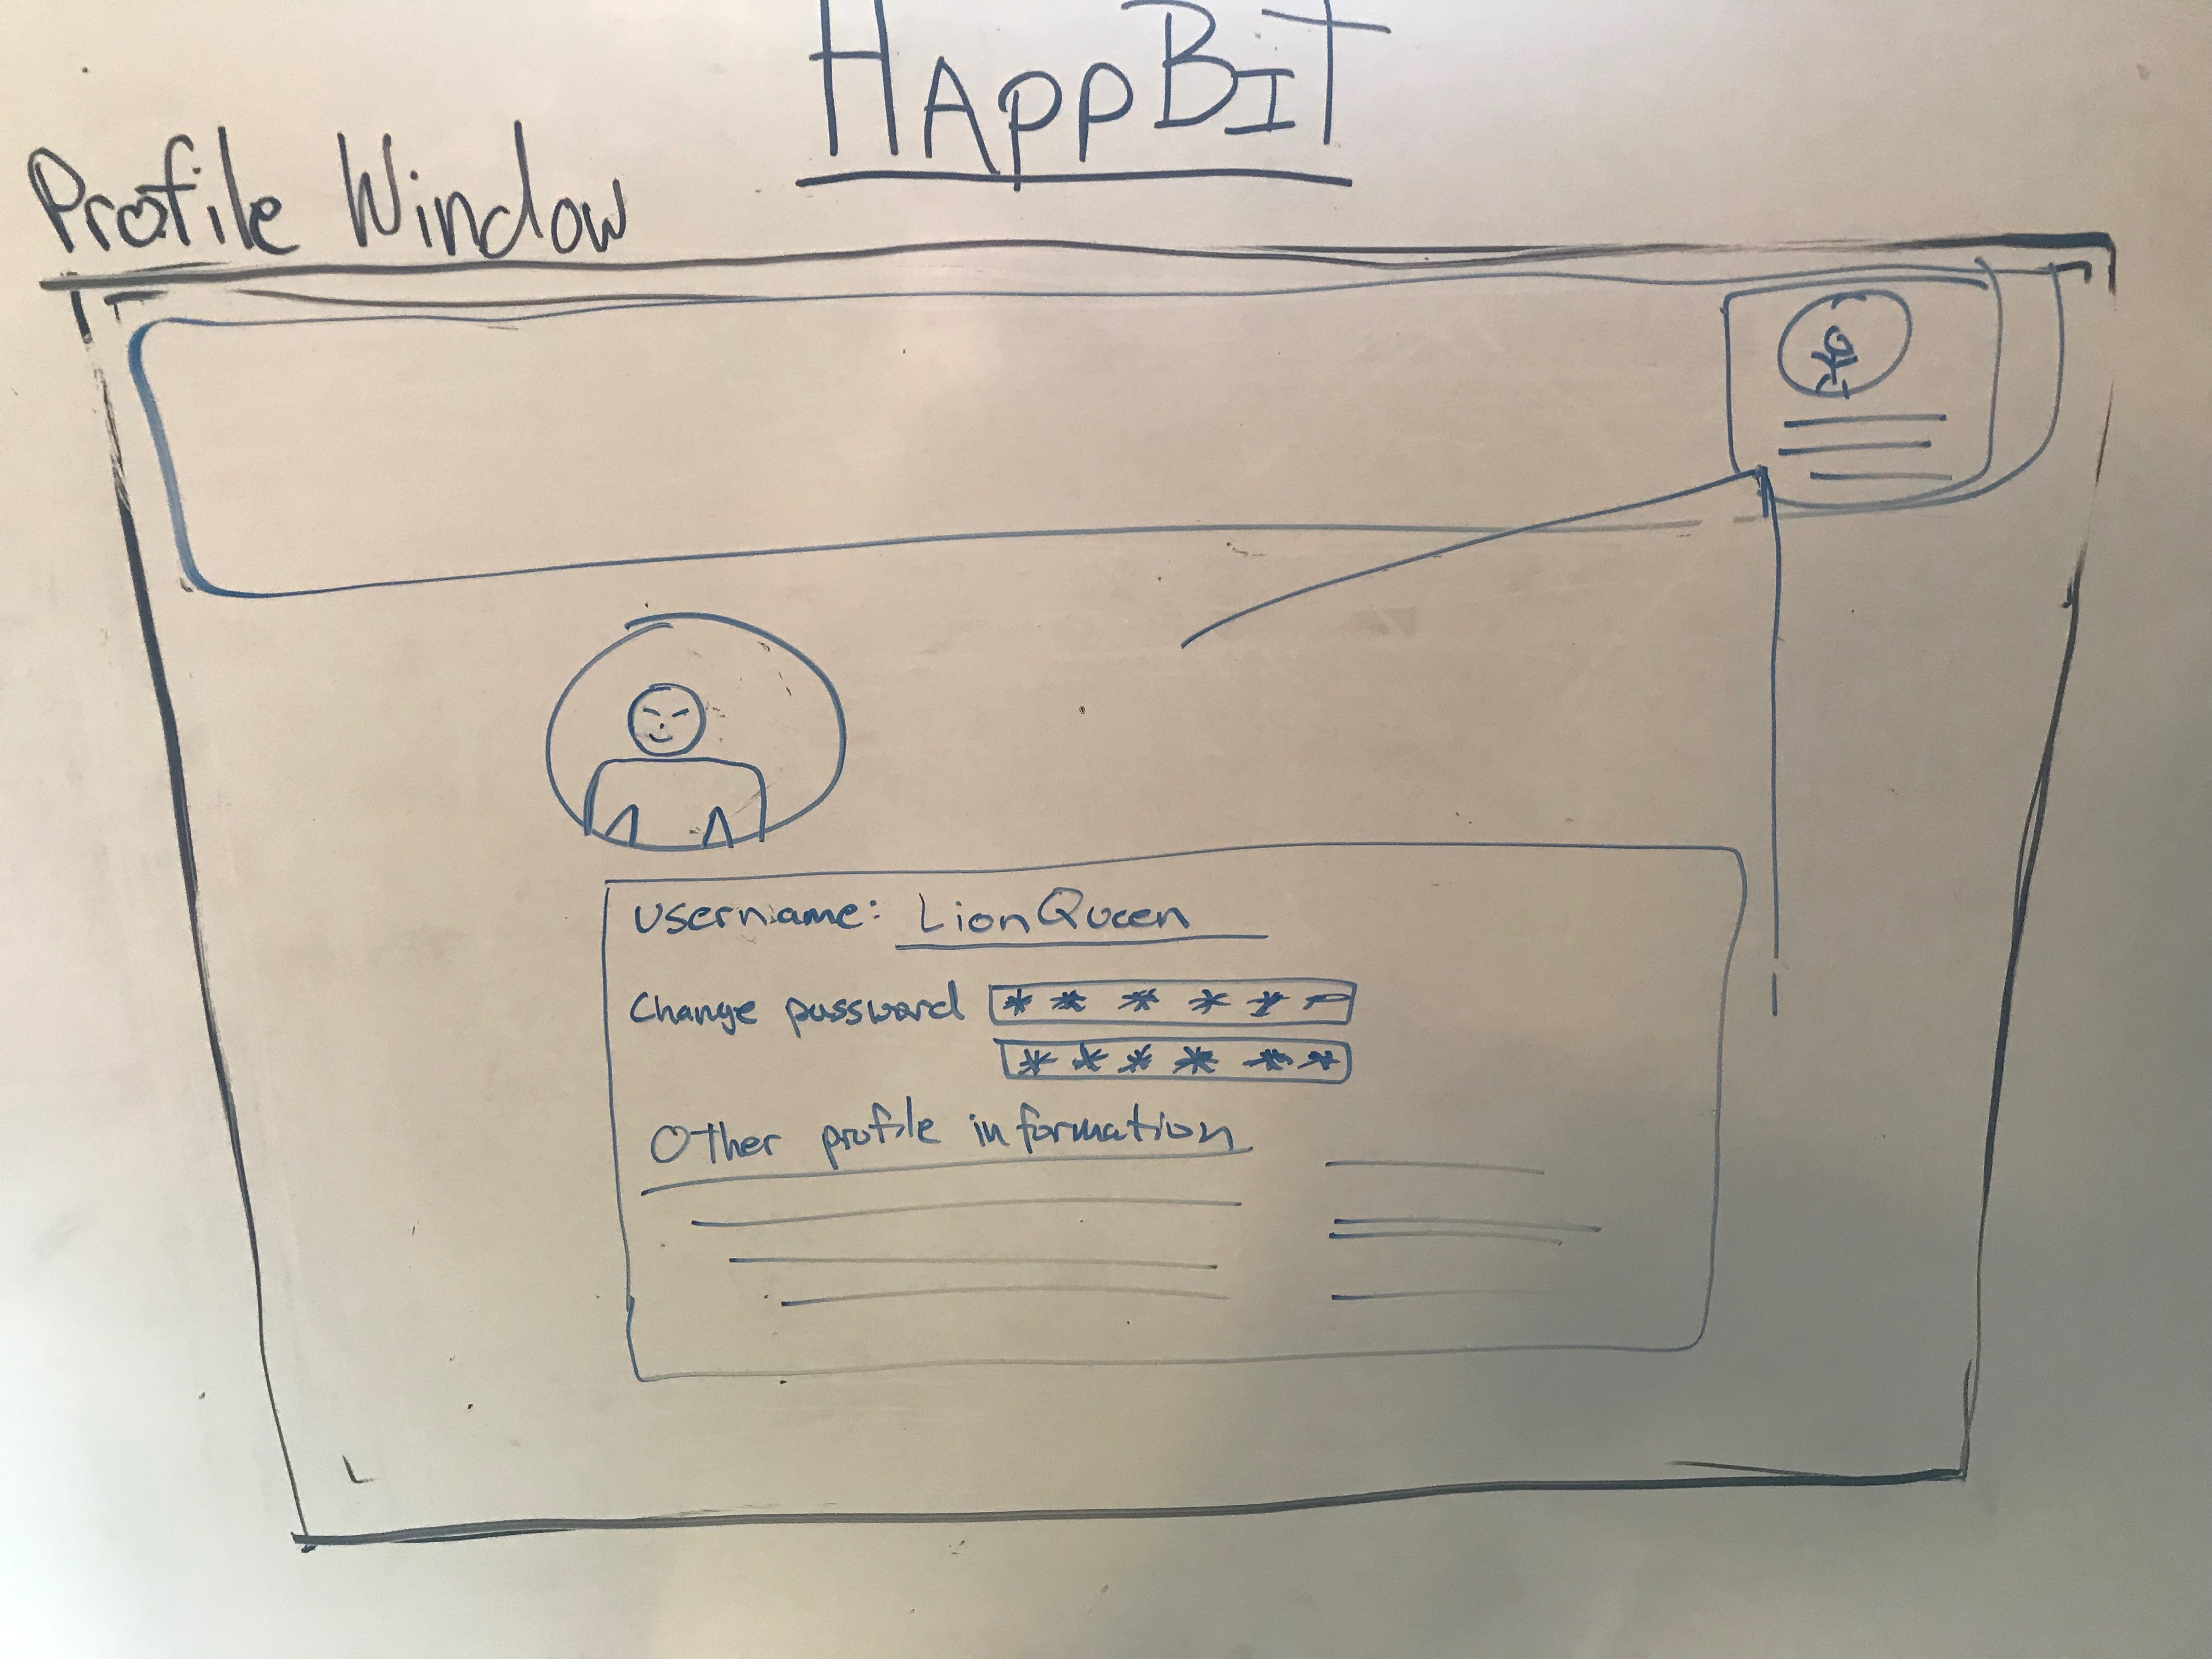 HAppBIT
Profile Window
Username: LionQueen
Change password * * * * * *
* * * * * *
Other profile information